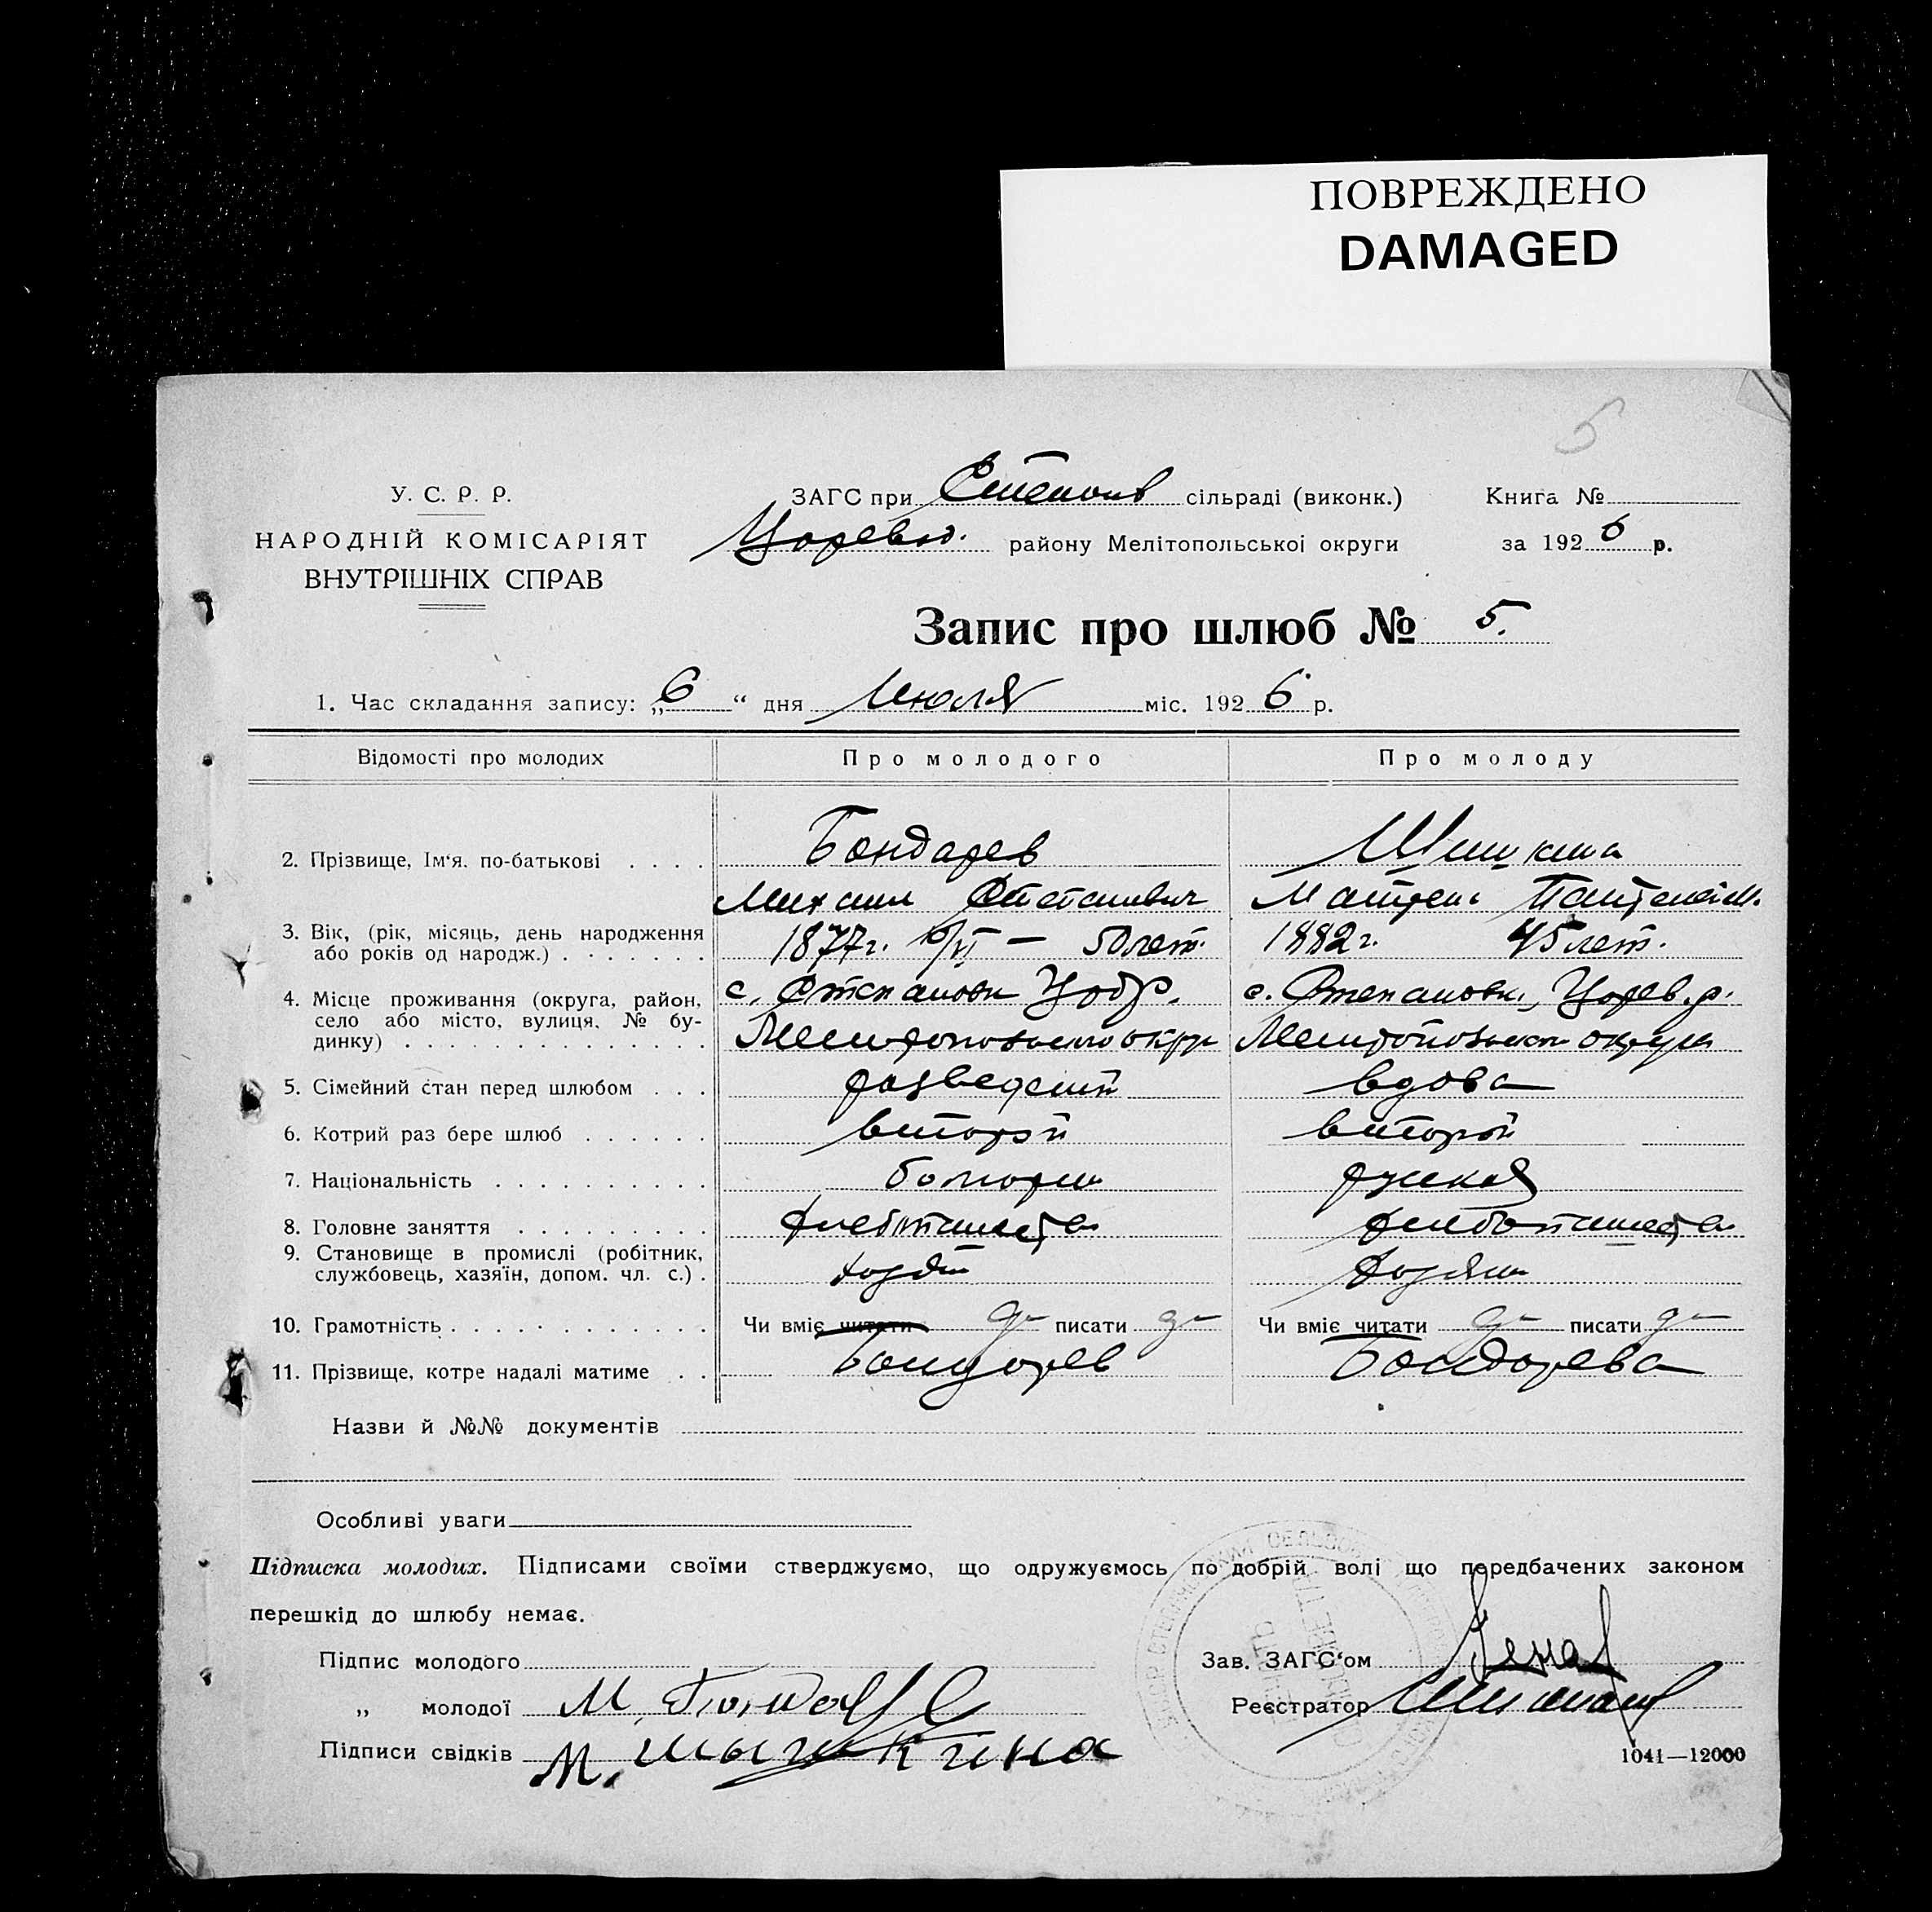 ПОВРЕЖДЕНО
DAMAGED
5
У. С. Р. Р.
НАРОДНІЙ КОМІСАРІЯТ
ВНУТРІШНІХ СПРАВ
ЗАГС при Степанов сільраді (виконк.)
Книга №
Царевод. району Мелітопольської округи
за 1926 р.
Запис про шлюб № 5.
1. Час складання запису: „6“ дня Июля міс. 1926 р.
Відомості про молодих Про молодого Про молоду
2. Прізвище, Ім‘я. по-батькові . . . . Бондарев Шишкина
Михаил Степанович Матрена
3. Вік, (рік, місяць, день народження 1877г. 6/VI — 50 лет. 1882 г. 45 лет.
або років од народж.) . . . . . . .
4. Місце проживання (округа, район, с. Степановк с. Степановки, Царев. р.
село або місто, вулиця, № бу-
динку) . . . . . . . . . . . . . . Мелитопольского окру Мелитопольског округа
5. Сімейний стан перед шлюбом . . . разведений вдова
6. Котрий раз бере шлюб . . . . . . второй второй
7. Національність . . . . . . . . . . болгарин руская
8. Головне заняття . . . . . . . . . хлебопашества хлебопашества
9. Становище в промислі (робітник,
службовець, хазяїн, допом. чл. с.) .
10. Грамотність . . . . . . . . . . . . Чи вміє читати да писати да Чи вміє читати да писати да
11. Прізвище, котре надалі матиме . . Бондарев Бондарева
Назви й №№ документів
Особливі уваги
Підписка молодих. Підписами своїми стверджуємо, що одружуємось по добрій волі що передбачених законом
перешкід до шлюбу немає.
Підпис молодого
Зав. ЗАГС‘ом
„ молодої М. Бондарев
Реєстратор
Підписи свідків М. Шышкина
1041—12000